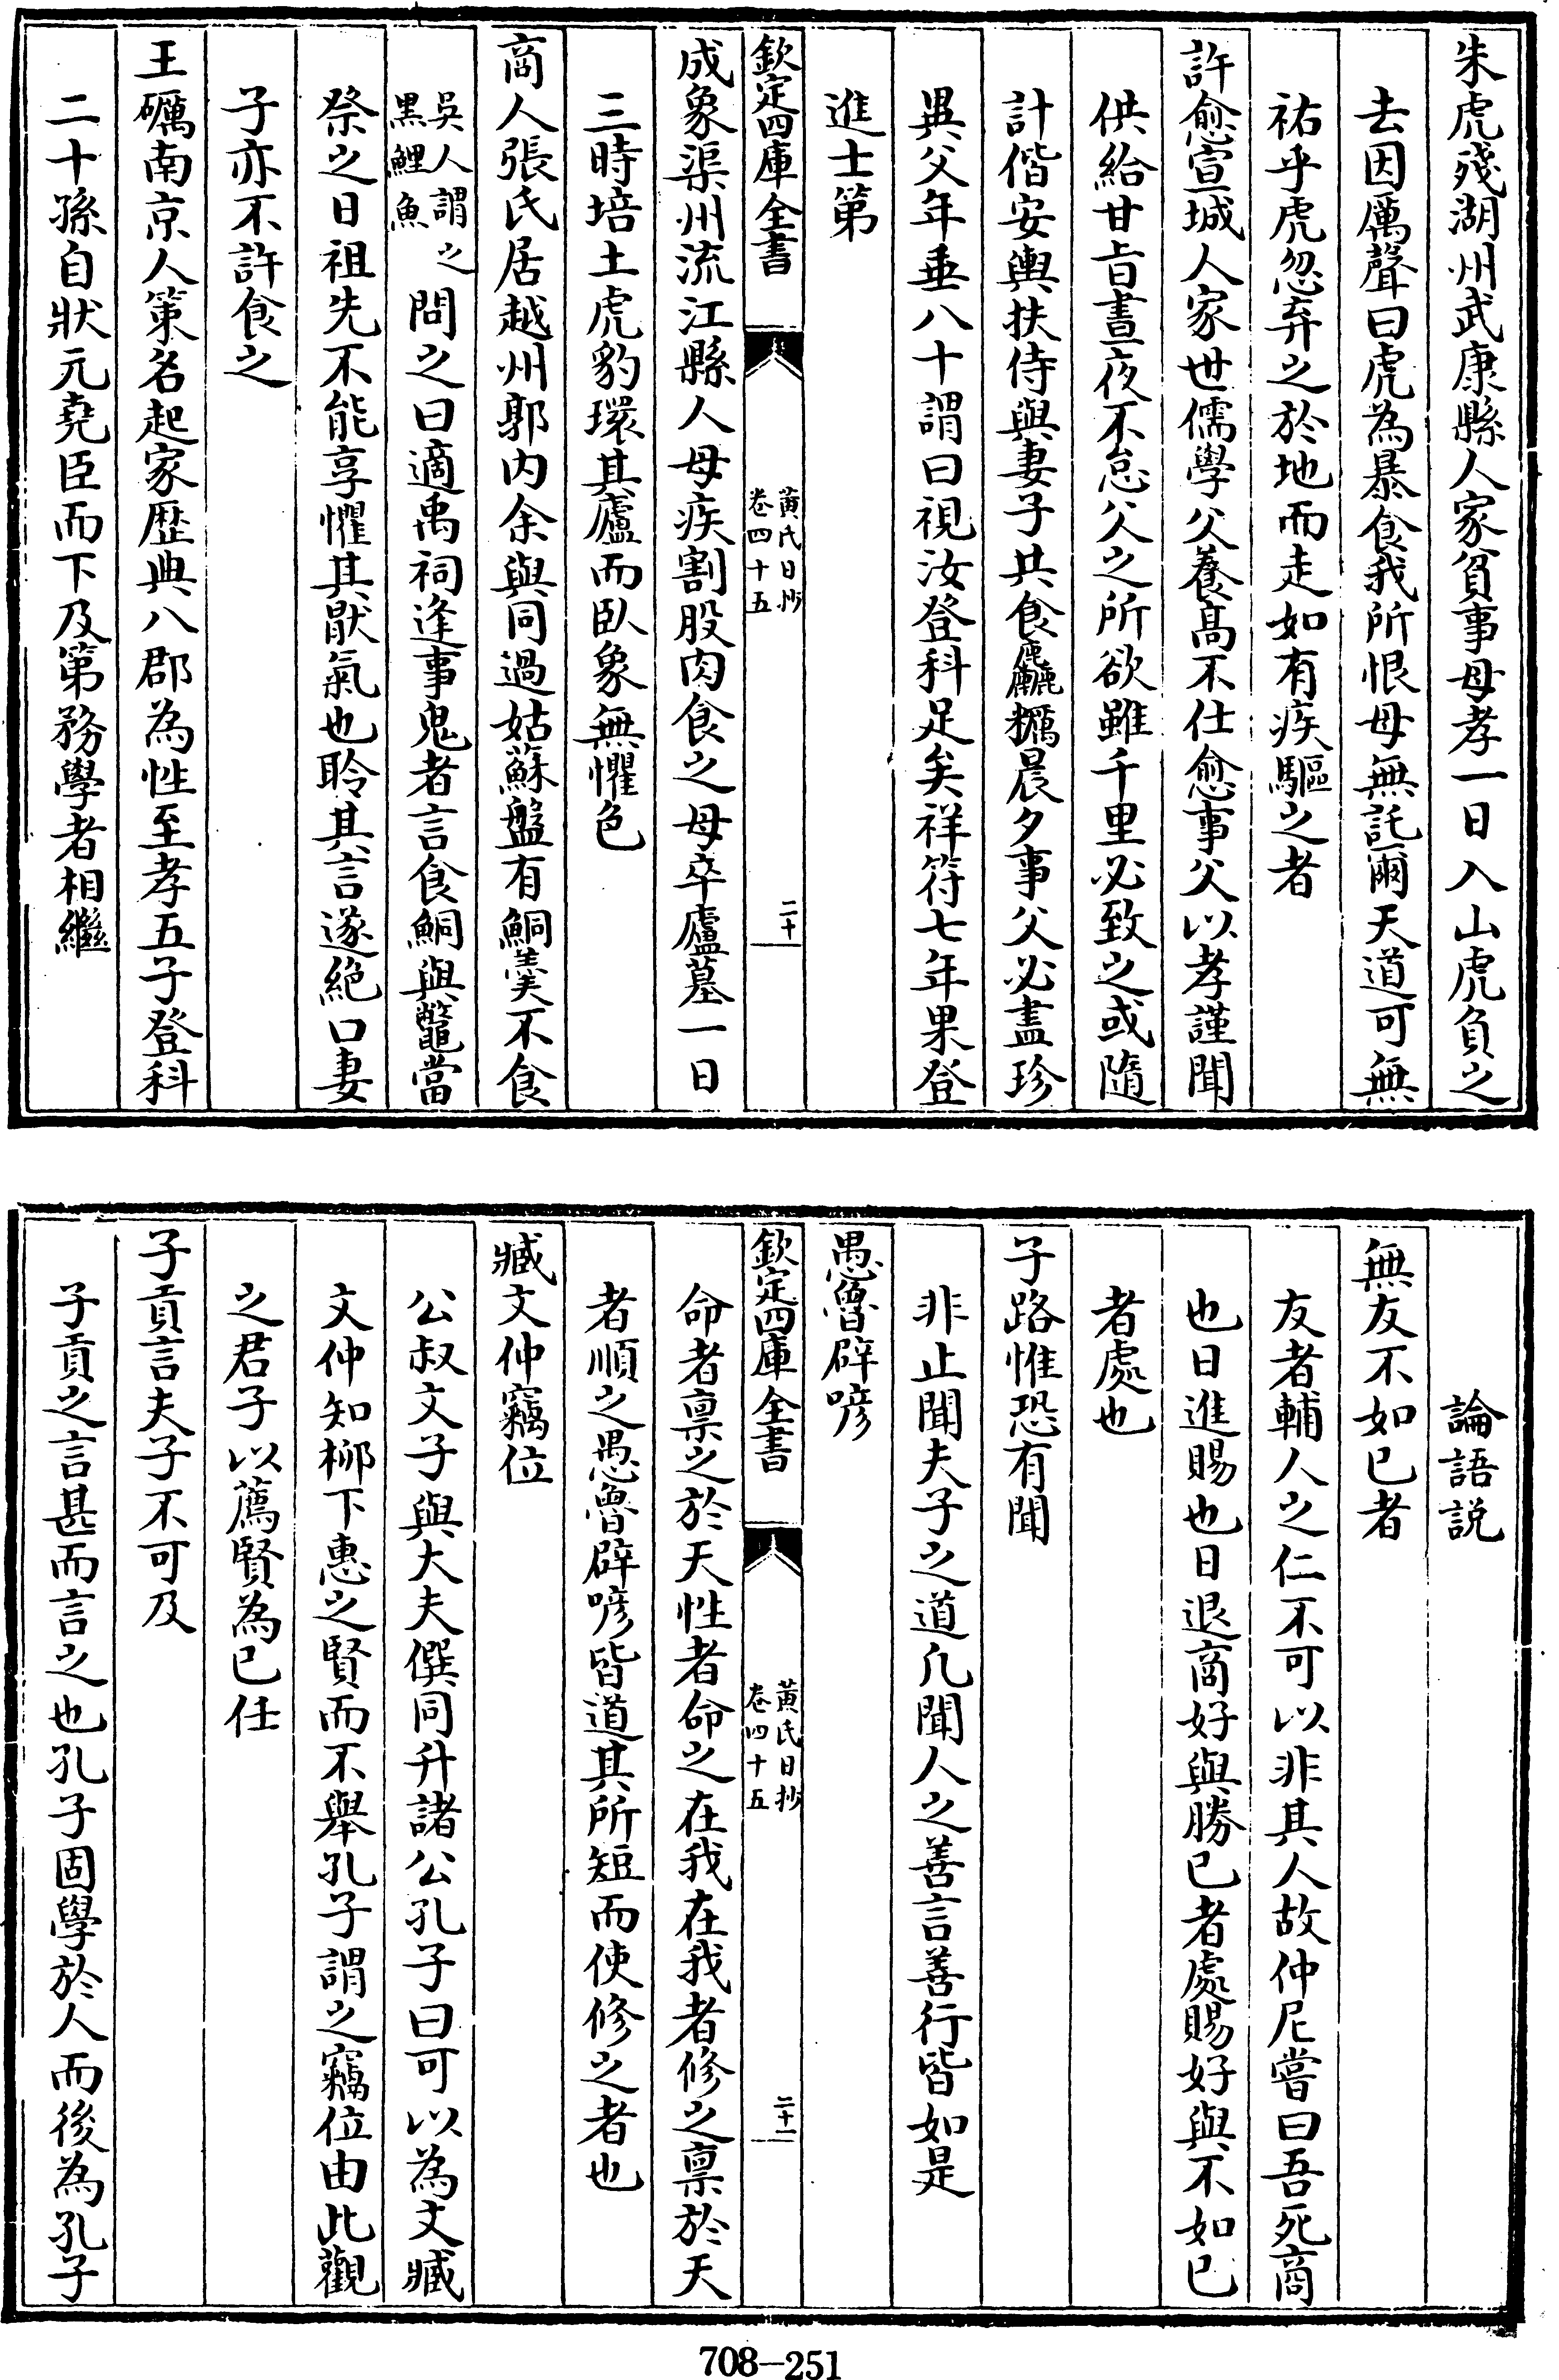 朱虎殘湖州武康縣人家貧事母孝一日入山虎負之
去因厲聲曰虎為暴食我所恨母無託爾天道可無
祐乎虎忽弃之於地而走如有疾驅之者
許愈宣城人家世儒學父養髙不仕愈事父以孝謹聞
供給甘旨晝夜不怠父之所欲雖千里必致之或隨
計偕安輿扶侍與妻子共食麤糲晨夕事父必盡珍
異父年垂八十謂曰視汝登科足矣祥符七年果登
進士第
欽定四庫全書
黄氏日抄
卷四十五
二十
成象渠州流江縣人母疾割股肉食之母卒廬墓一日
三時培土虎豹環其廬而臥象無懼色
商人張氏居越州郭内余與同過姑蘇盤有鮦羮不食
吳人謂之
黑鯉魚
問之曰適禹祠逢事鬼者言食鮦與鼈當
祭之日祖先不能享懼其猒氣也聆其言遂絶口妻
子亦不許食之
王礪南京人策名起家歴典八郡為性至孝五子登科
二十孫自狀元堯臣而下及第務學者相繼
論語説
無友不如已者
友者輔人之仁不可以非其人故仲尼嘗曰吾死商
也日進賜也日退商好與勝已者處賜好與不如已
者處也
子路惟恐有聞
非止聞夫子之道凡聞人之善言善行皆如是
愚魯辟喭
欽定四庫全書
黄氏日抄
卷四十五
二十一
命者禀之於天性者命之在我在我者修之禀於天
者順之愚魯辟喭皆道其所短而使修之者也
臧文仲竊位
公叔文子與大夫僎同升諸公孔子曰可以為文臧
文仲知柳下惠之賢而不舉孔子謂之竊位由此觀
之君子以薦賢為已任
子貢言夫子不可及
子貢之言甚而言之也孔子固學於人而後為孔子
708-251